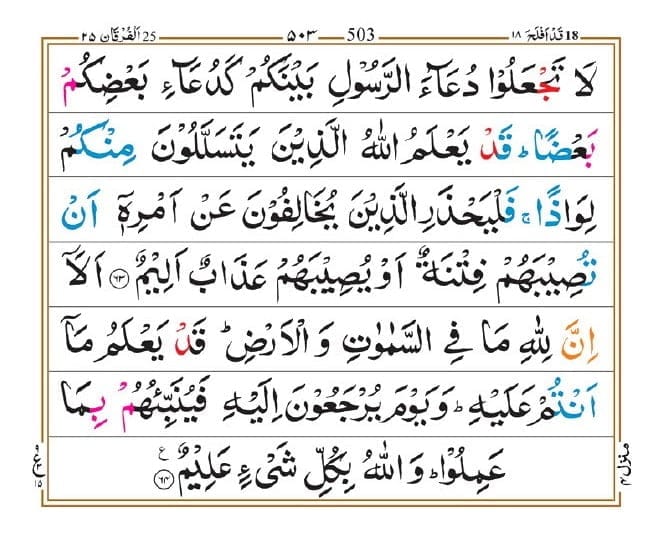 18 قد افلح ١٨ 503 ٥٠٣ 25 الفرقان ٢٥
لَا تَجْعَلُوْا دُعَآءَ الرَّسُوْلِ بَيْنَكُمْ كَدُعَآءِ بَعْضِكُمْ
بَعْضًا ؕ قَدْ يَعْلَمُ اللّٰهُ الَّذِيْنَ يَتَسَلَّلُوْنَ مِنْكُمْ
لِوَاذًا ۚ فَلْيَحْذَرِ الَّذِيْنَ يُخَالِفُوْنَ عَنْ اَمْرِهٖۤ اَنْ
تُصِيْبَهُمْ فِتْنَةٌ اَوْ يُصِيْبَهُمْ عَذَابٌ اَلِيْمٌ ﴿٦٣﴾ اَلَاۤ
اِنَّ لِلّٰهِ مَا فِي السَّمٰوٰتِ وَ الْاَرْضِ ؕ قَدْ يَعْلَمُ مَاۤ
اَنْتُمْ عَلَيْهِ ؕ وَ يَوْمَ يُرْجَعُوْنَ اِلَيْهِ فَيُنَبِّئُهُمْ بِمَا
عَمِلُوْا ؕ وَ اللّٰهُ بِكُلِّ شَیْءٍ عَلِيْمٌ ﴿٦٤﴾ ع
منزل ٤